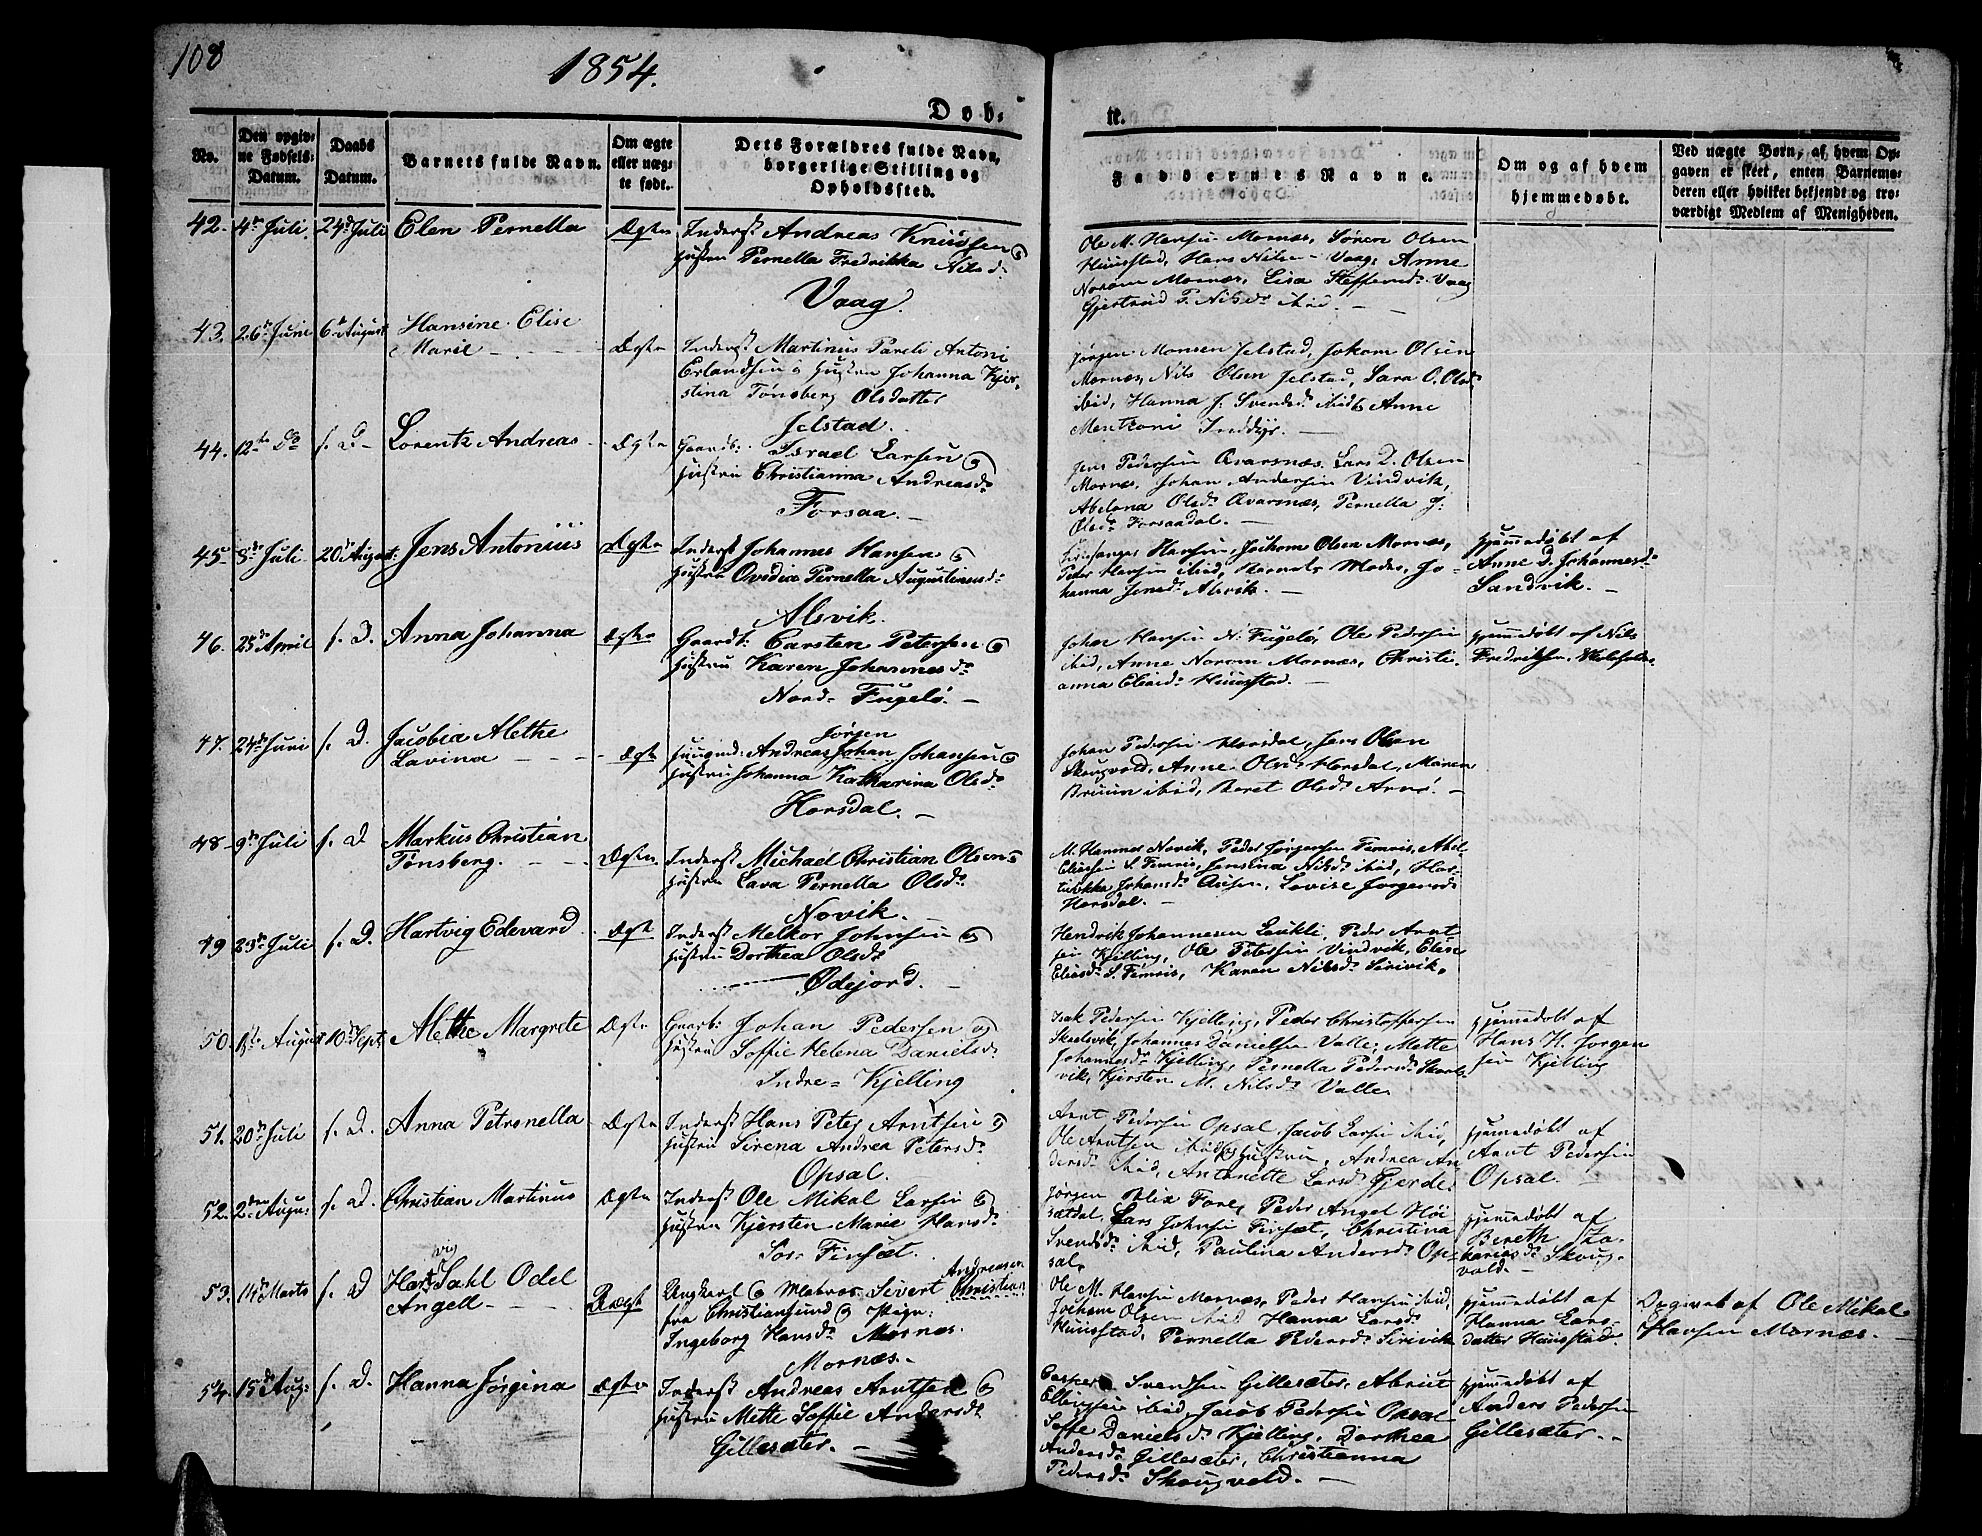 108
1854.
Døb-
te.
No.
Den opgiv-
ne Fødsels-
Datum.
Daabs
Datum.
Barnets fulde Navn.
Om ægte
eller uæg-
te født.
Dets Forældres fulde Navn,
borgerlige Stilling og
Opholdssted.
Faddernes Navne.
Om og af hvem
hjemmedøbt.
Ved uægte Børn, af hvem Op-
gaven er skeet, enten Barnemo-
deren eller hvilket bekjendt og tro-
værdigt Medlem af Menigheden.
42. 4de Juli 24de Juli Elen Pernella Ægte Inderst Andreas Knudsen og
Hustru Pernella Fredrikka Nilsd:
Vaag.
Ole M. Hansen Mornæs, Sören Olsen
Huustad, Hans Nilsen Vaag, Anne
Norom Mornæs, Lisa Steffensd: Vaag
Gjertrud P. Nilsd: ibid. —
43. 26de Juni 6te August Hansine Elise
Marie Ægte Inderst Martinus Pareli Antoni
Erlandsen og Hustru Johanna Kjer-
stina Tönsberg Olsdatter
Jelstad.
Jörgen Monsen Jelstad, Jokom Olsen
Mornæs, Nils Olsen Jelstad, Sara O. Olsd:
ibid, Hanna J. Svendsd: ibid & Anne
Mentzoni
44. 12te Do s. D. Lorentz Andreas Ægte Gaardb: Israel Larsen og
Hustru Christianna Andreasd:
Forsaa. —
Jens Pedersen Qvarsnæs, Lars D. Olsen
Mornæs, Johan Andersen Vindvik,
Abelona Olsd: Qvarsnæs, Pernella J:
Olsd: Forsaadal. —
45 8de Juli 20de August: Jens Antonius Ægte Inderst Johannes Hansen og
Hustru Ovedia Pernella Augustinusd:
Alsvik.
Hansen, Jochom Olsen Mornæs,
Peder Hansen ibid, Jo-
hanna Jensd: Alsvik. —
Hjemmedøbt af
Anne D. Johannesd:
Sandvik. —
46. 25de April s. D. Anna Johanna Ægte Gaardb: Carsten Petersen og
Hustru Karen Johannesd:
Nord-Fugelö. —
Johan Hansen N: Fugelö, Ole Pedersen
ibid, Anne Norom Mornæs, Christi-
anna Eliasd: Huustad. —
Hjemmedøbt af Nils
Fredriksen
47. 24de Juni s. D. Jacobia Alethe
Lavina Ægte Huusmd: Andreas Jörgen Johan Johansen og
Hustru Johanna Katharina Olsd:
Horsdal. —
Johan Pedersen Horsdal, Jens Olsen
Skougvold, Anne Olsd: Horsdal, Maren
Bruun ibid, Beret Olsd: Arnö. —
48 9de Juli s. D Markus Christian
Tönsberg. Ægte Inderst Michael Christian Olsen og
Hustru Lava Pernella Olsd:
Novik.
M. Hammer Novik, Peder Jörgensen Femris, Abel
Eliasen S. Femris, Jensina Nilsd: ibid, Har-
tvikka Johansd: Lovise Jörgensd:
Horsdal. —
49 23de Juli s. D. Hartvig Edevard Ægt Inderst Melkor Johnsen og
Hustru Dorthea Olsd:
Ødejord. —
Hendrik Johannesen Laukli, Peder Arnt
sen Kjelling, Ole Petersen Vindvik, Elise
Eliasd: S. Femris, Karen Nilsd: Seivik.
50. 1ste August 10de Sept: Alethe Margrete Ægte Gaarb: Johan Pedersen og
Hustru Soffie Helena Danielsd:
Indre-Kjelling
Isak Pedersen Kjelling, Peder Christoffersen
Skaalsvik, Johannes Danielsen Valle, Mette
Johannesd: Kjelling, Pernella Pedersd: Skaals
vik, Kjersten M. Nilsd: Valle.
Hjemmedøbt af
Hans H. Jörgen
sen Kjelling
51. 20de Juli s. D. Anna Petronella Ægte Inderst Hans Peter Arntsen og
Hustru Sirena Andrea Petersd:
Opsal.
Arnt Pedersen Opsal, Jacob Larsen ibid,
Ole Arntsen ibid & Hustru, Andrea An
dersd: ibid, Antonette Larsd: Gjerde.
Hjemmedøbt af
Arnt Pedersen
Opsal. —
52. 2den Augu: s. D. Christian Martinus Ægte Inderst Ole Mikal Larsen og
Hustru Kjersten Marie Hansd:
Sör-Finsæt.
Jörgen Alex Fore, Peder Angel Höi
sætdal, Lars Johnsen Finsæt, Christina
Svendsd: ibid, Paulina Andersd: Op-
sal.
Hjemmedøbt af
Bereth Za-
kariasd: Skoug-
vold. —
53. 14de Marts s. D Hartvig Sahl Odel
Angell Uægt Ungkarl og Matros Sivert Andreasen Christian
fra Christiansund og Pige:
Ingeborg Hansd: Mornæs.
Mornæs.
Ole M. Hansen Mornæs, Peder Hansen ibid,
Jochom Olsen ibid Hanna Larsd:
Huustad, Pernella Pedersd: Seivik
Hjemmedøbt af
Hanna Lars-
datter Huustad.
Opgivet af Ole Mikal
Hansen Mornæs. —
54. 15de Aug: s. D. Hanna Jörgina Ægte Inderst Andreas Arntsen og
Hustru Mette Soffie Andersd:
Gillesæter. —
Casper Svendsen Gillesæter,
Ellingsen ibid, Jacob Pedersen Opsal
Soffe Danielsd: Kjelling, Dorthea
Andersd: Gillesæter, Christianna
Pedersd: Skougvold. —
Hjemmedøbt af
Anders Pedersen
Gillesæter. —